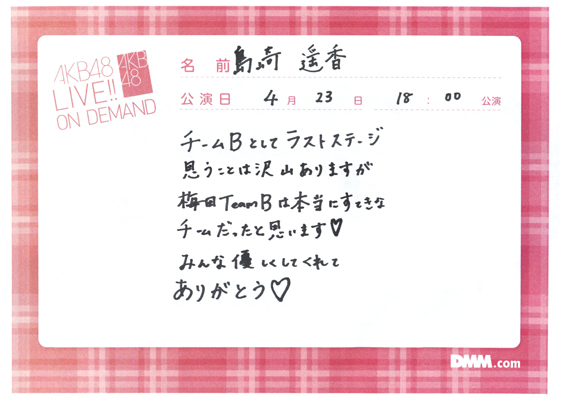 AKB48
LIVE!!
ON DEMAND
AKB
48
名 前 島崎 遥香
公演日 4月 23日 18:00 公演
チームBとしてラストステージ
思うことは沢山ありますが
梅田TeamBは本当にすてきな
チームだったと思います♡
みんな優しくしてくれて
ありがとう♡
DMM.com